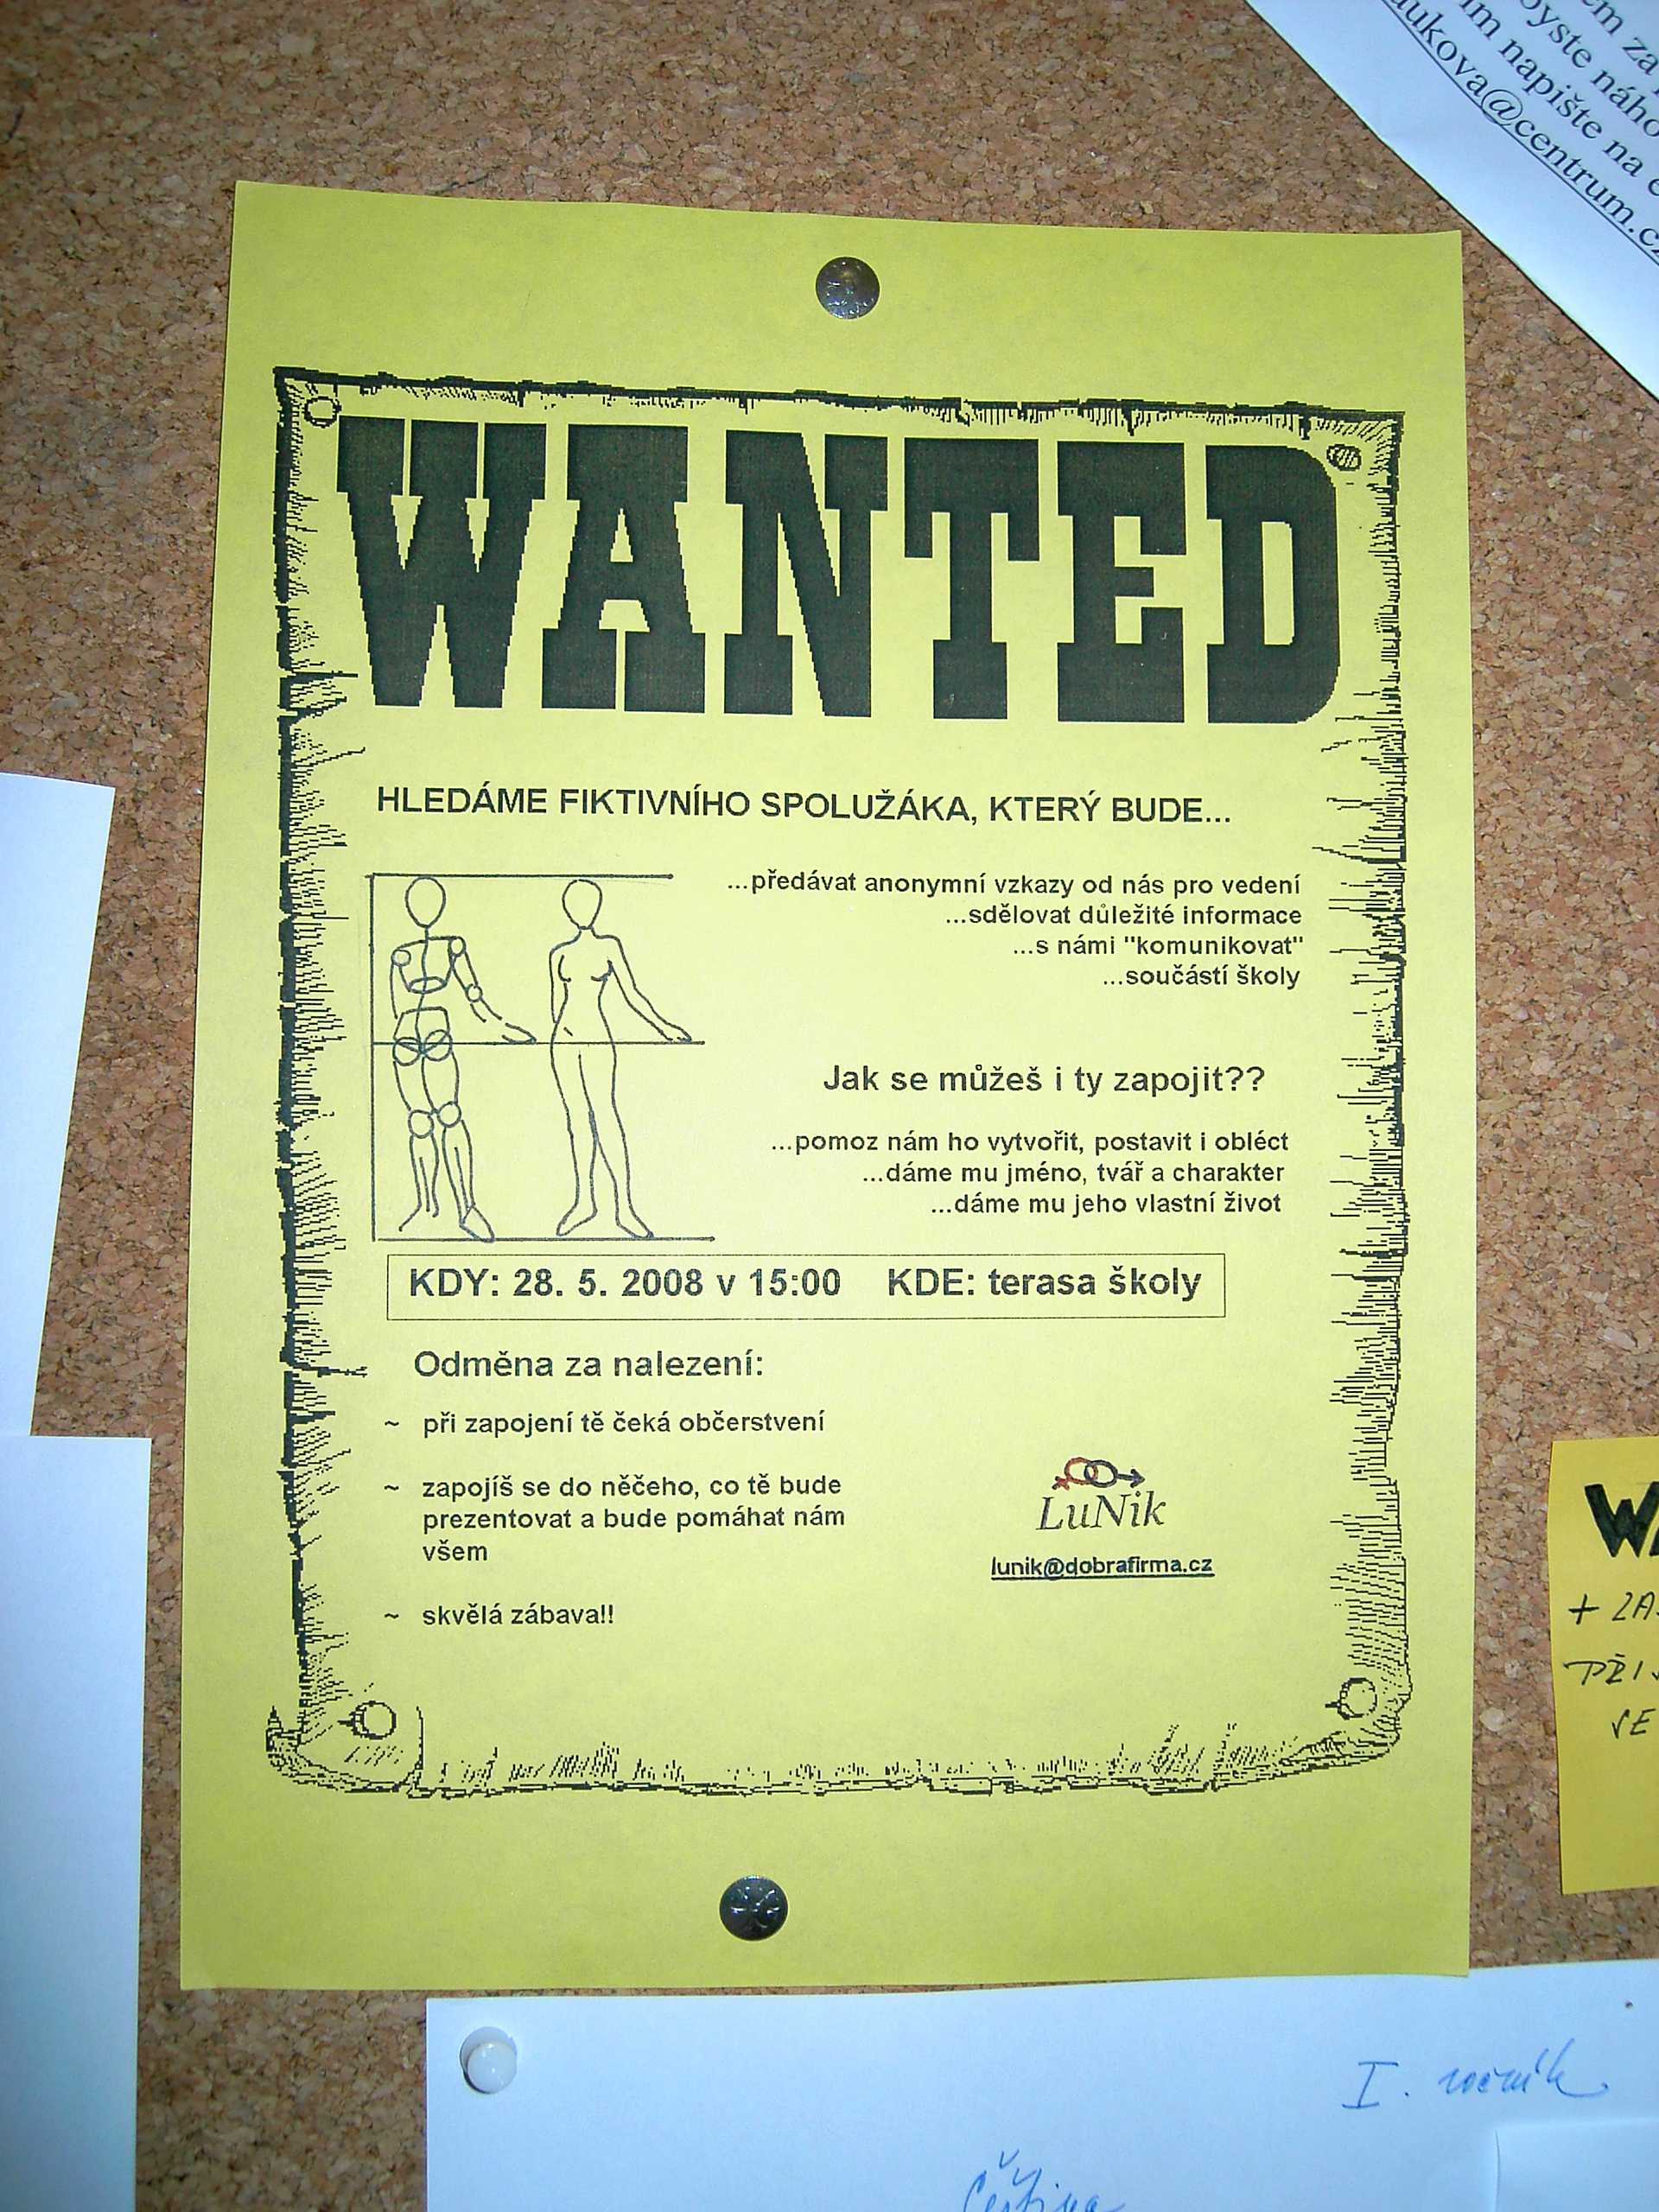 WANTED
HLEDÁME FIKTIVNÍHO SPOLUŽÁKA, KTERÝ BUDE...
...předávat anonymní vzkazy od nás pro vedení
...sdělovat důležité informace
...s námi "komunikovat"
...součástí školy
Jak se můžeš i ty zapojit??
...pomoz nám ho vytvořit, postavit i obléct
...dáme mu jméno, tvář a charakter
...dáme mu jeho vlastní život
KDY: 28. 5. 2008 v 15:00 KDE: terasa školy
Odměna za nalezení:
~ při zapojení tě čeká občerstvení
~ zapojíš se do něčeho, co tě bude
prezentovat a bude pomáhat nám
všem
~ skvělá zábava!!
LuNik
lunik@dobrafirma.cz
za
byste
napište na
@centrum.cz
VE
I. ročník
Čeština